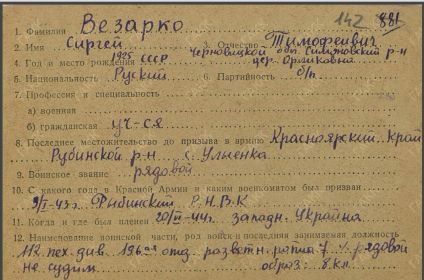 142 881
1. Фамилия Везарко
2. Имя Сиргей 3. Отчество Тимофеивич
4. Год и место рождения 1925 СССР Черновицкой обл. р-н
дер.
5. Национальность Руский 6. Партийность б/п
7. Профессия и специальность
а) военная
б) гражданская уч-ся
8. Последнее местожительство до призыва в армию Красноярский Край
Рубинской р-н с. Улненка
9. Воинское звание рядовой
10. С какого года в Красной Армии и каким военкоматом был призван
9/I-43 г. Рыбинский Р.Н.В.К
11. Когда и где был пленен 20/III-44 г. западн. Украйна
12. Наименование воинской части, род войск и последняя занимаемая должность
112 пех. див. 196 отд. разветн. ратта рядовой
не судим образ: 8 кл.